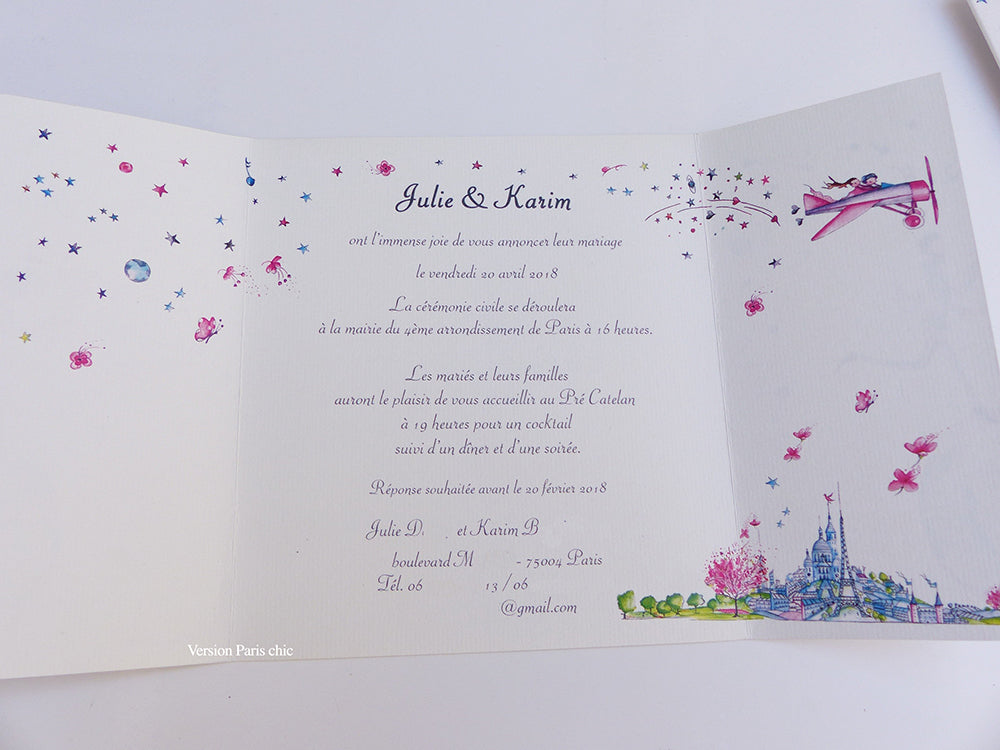 Julie & Karim
ont l'immense joie de vous annoncer leur mariage
le vendredi 20 avril 2018
La cérémonie civile se déroulera
à la mairie du 4ème arrondissement de Paris à 16 heures.
Les mariés et leurs familles
auront le plaisir de vous accueillir au Pré Catelan
à 19 heures pour un cocktail
suivi d'un dîner et d'une soirée.
Réponse souhaitée avant le 20 février 2018
Julie D. et Karim B
boulevard M - 75004 Paris
Tél. 06 13 / 06
@gmail.com
Version Paris chic